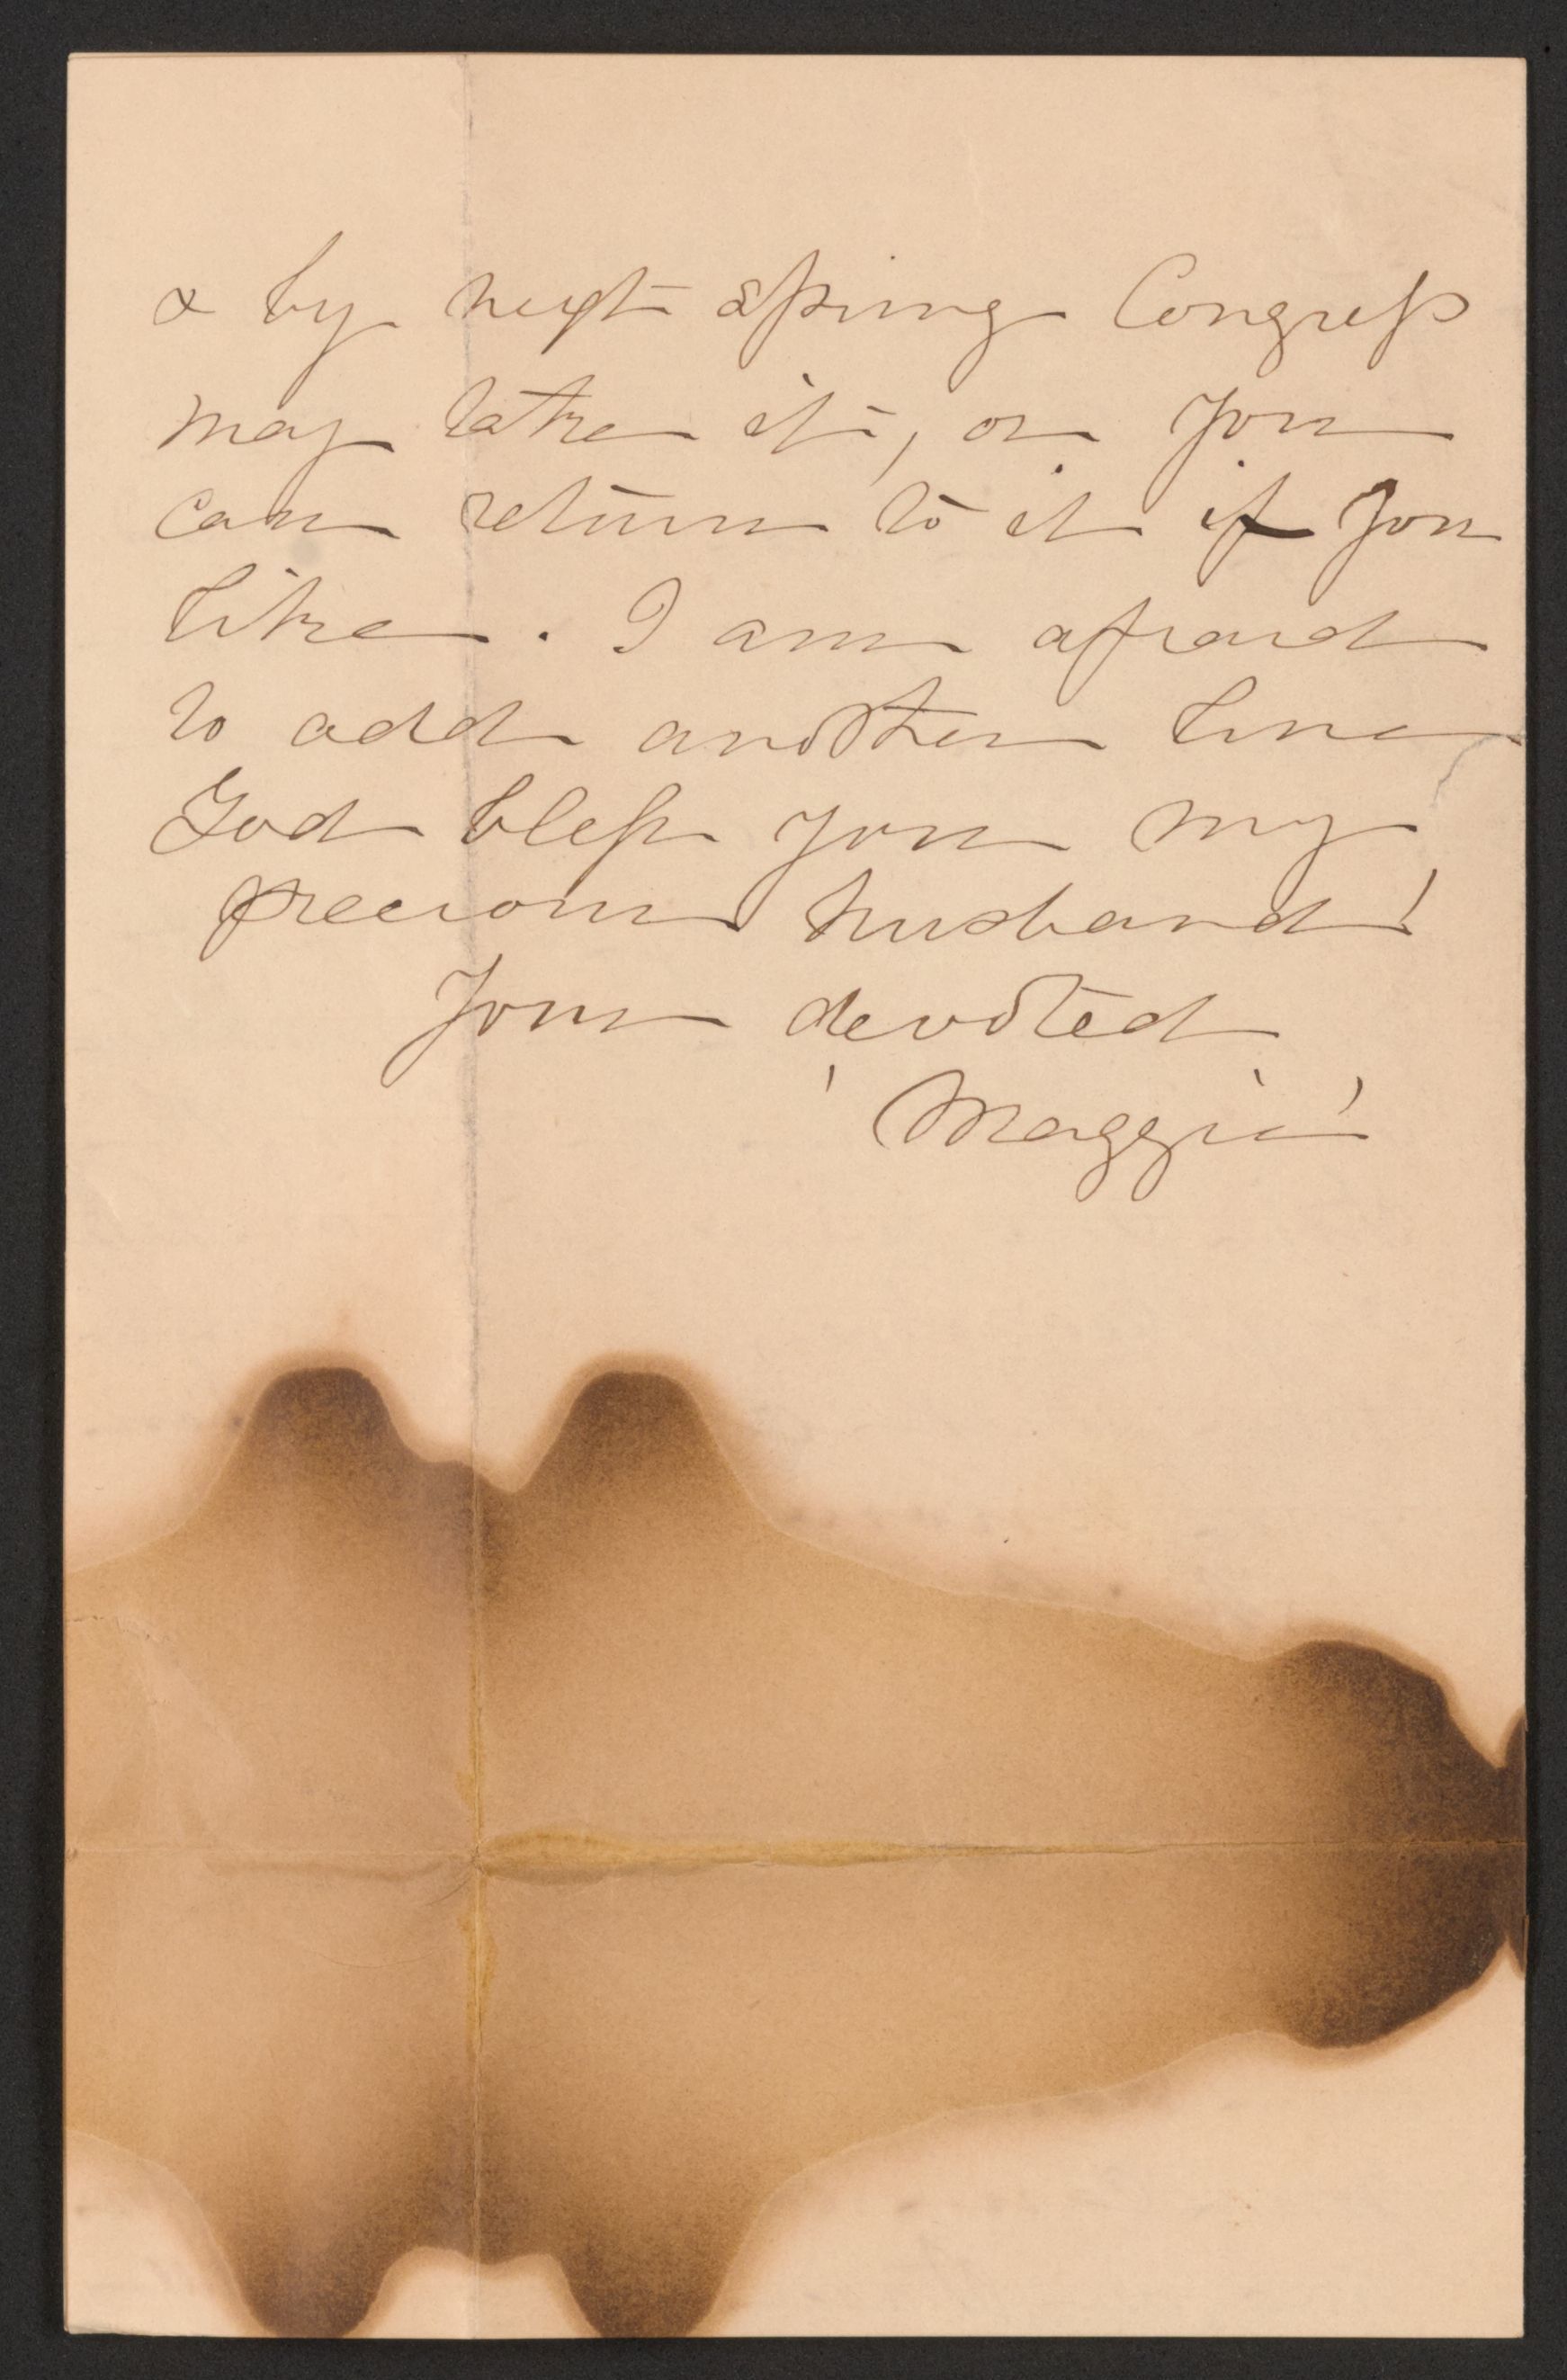 & by next spring Congress
may take it, or you
can return to it if you
like. I am afraid
to add another line
God bless you my
precious husband!
Your devoted
'Maggie'